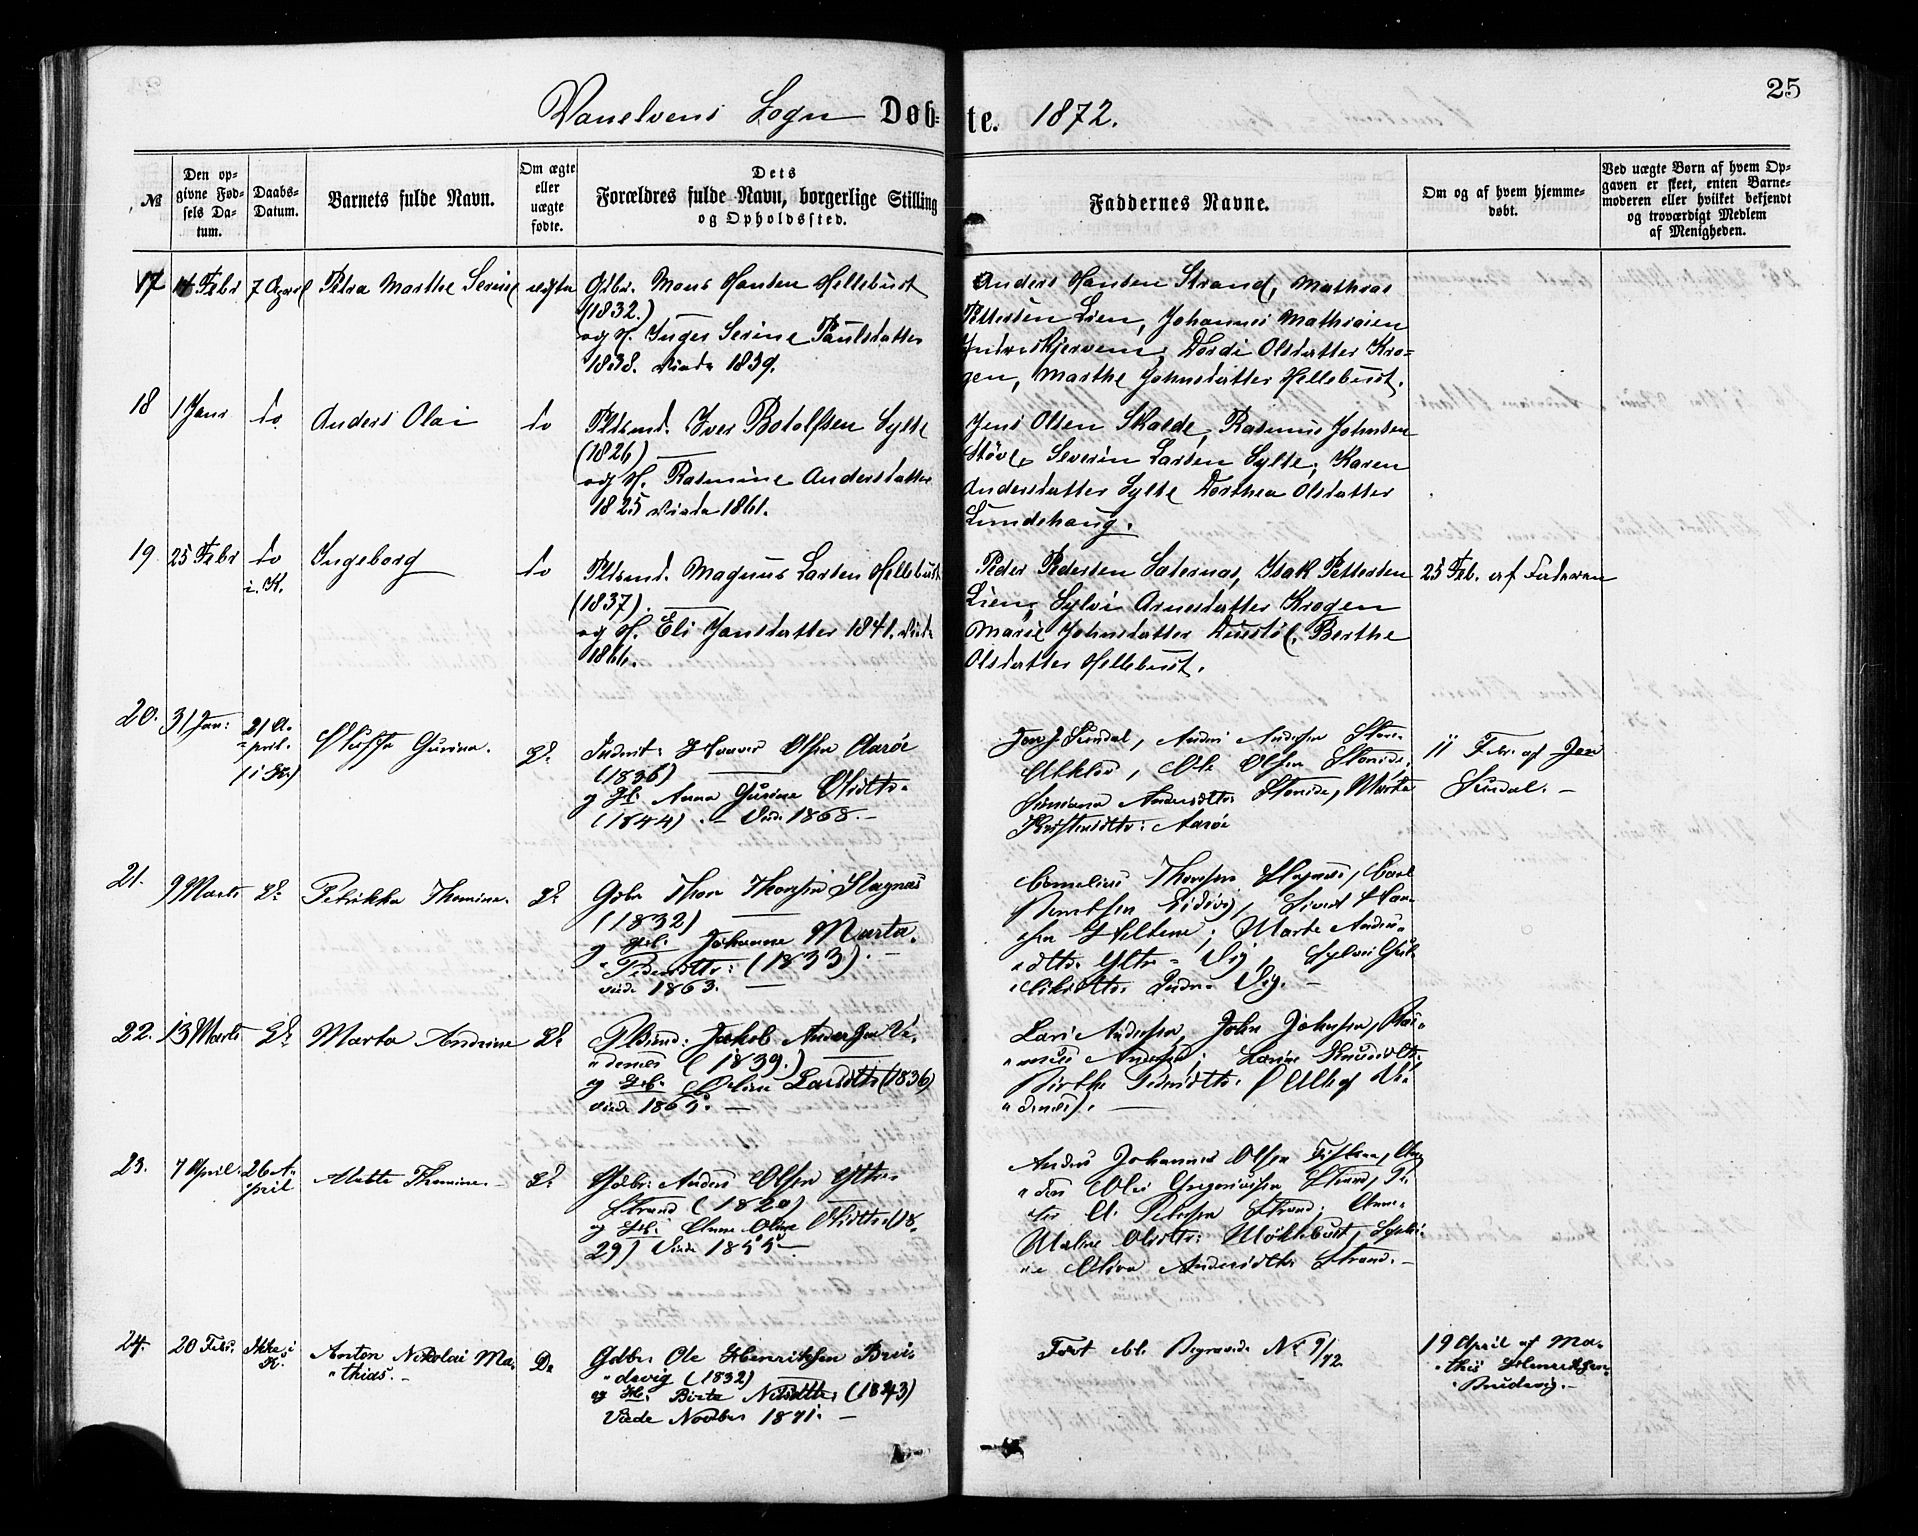 25
Vanelvens Sogn Døb= te. 1872.
№
Den op-
givne Fød-
sels Da-
tum.
Daabs-
Datum.
Barnets fulde Navn.
Om ægte
eller
uægte
fødte.
Dets
Forældres fulde Navn, borgerlige Stilling
og Opholdssted.
Faddernes Navne.
Om og af hvem hjemme-
døbt.
Ved uægte Børn af hvem Op-
gaven er skeet, enten Barne-
moderen eller hvilket bekjendt
og troværdigt Medlem
af Menigheden.
17 14 Febr 7 April Petra Marthe Serine ægte Gdbr. Mons Hansen Hellebust
(1832.)
og H. Inger Serine Paulsdatter
1838. viede 1859.
Anders Hansen Strand, Mathias
Pettersen Lien, Johannes Mathiasen
Indreskjervem, Dordi Olsdatter Kro=
gen, Marthe Johnsdatter Hellebust.
18 1 Janr do Anders Olai do Pldsmd. Iver Botolfsen Sylte
(1826)
og H. Rasmine Andersdatter
1825 viede 1861.
Jens Olsen Skalde, Rasmus Johnsen
Støve, Severin Larsen Sylte, Karen
Andersdatter Sylte Dorthea Olsdatter
Lundehaug.
19. 25 Febr do
i. K.
Ingeborg do Pldsmd. Magnus Larsen Hellebust
(1837).
og H. Eli Jansdatter 1841. viede
1866.
Peder Pedersen Saternas, Isak Pettersen
Lien, Sylvi Arnesdatter Krogen
Marie Johnsdatter Duestøl, Berthe
Olsdatter Hellebust.
25 Feb. af Faderen
20. 31 Jan: 21 A-
pril.
(i K.)
Gurina. Do Inderst: Olsen Aarøe
(1836)
og H. Anna Gurine Olsdtr.
(1844). - Viede 1868. -
Jon J Sundal, Anders Andersen
Ole Olsen
Andersdtr. Marte
Kristensdtr: Aarøe
11 Febr af Jon
Sundal. -
21. 9 Marts Do Petrikka Thomine. Do Gdbr Thore Thoresen Slagnæs
(1832)
og H. Johanne Marta.
Pedersdtr: (1833). -
viede 1863. -
Cornelius Thoresen Slagnæs, Carl
Berntsen Eidsvig, Sivert
Marte Anders-
dtr. Ytre - Vig, Sylvi
Indre - Vig. -
22. 13 Marts Do Marta Andrine Do Plsmd: Jakob Andersen Va-
denæs (1839.)
og H. Oline Larsdtr (1836)
viede 1865. -
Lars Andersen, John Johnsen, Ras-
mus Andersen, Karine Knudsdtr.
Birthe Pedersdtr. (Alle af Va-
denæs). -
23. 7 April. 26 A-
pril
Mette Thomine. - Do Gdbr: Anders Olsen Ytre
Strand (1820)
og H. Anne Oline Olsdtr: (18-
29) Viede 1855. -
Anders Johannes Olsen Fiskaa, An-
ders Olai Gregoriussen Strand, Pe-
ter A. Petersen Strand, Anne
Maline Olsdtr: Møkelbust, Seri-
ne Oliva Andersdtr Strand. -
24. 20 Febr. Ikke i
K.
Anton Nikolai Ma-
thias. -
Do Gdbr: Ole Henriksen Brei-
devig (1832)
og H: Birte Nilsdtr: (1843)
Viede Novbr 1871. -
Ført bl. Begravede No 9/72
19 April af Ma-
this Henriksen
Breidevig. -